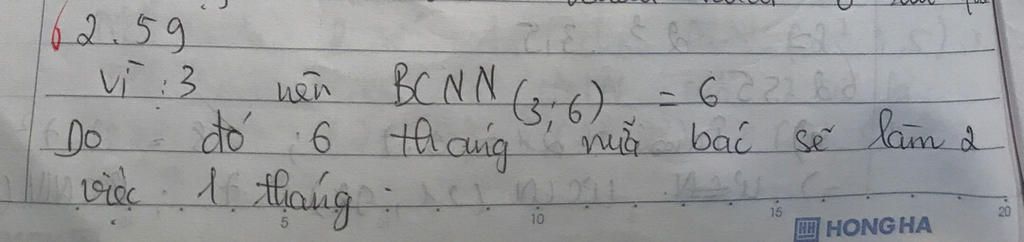 6 2.59
Vì : 3 nên BCNN (3;6) = 6
Do đó 6 tháng nữa bác sẽ làm 2
việc 1 tháng .
5 10 15 20
HH HONG HA